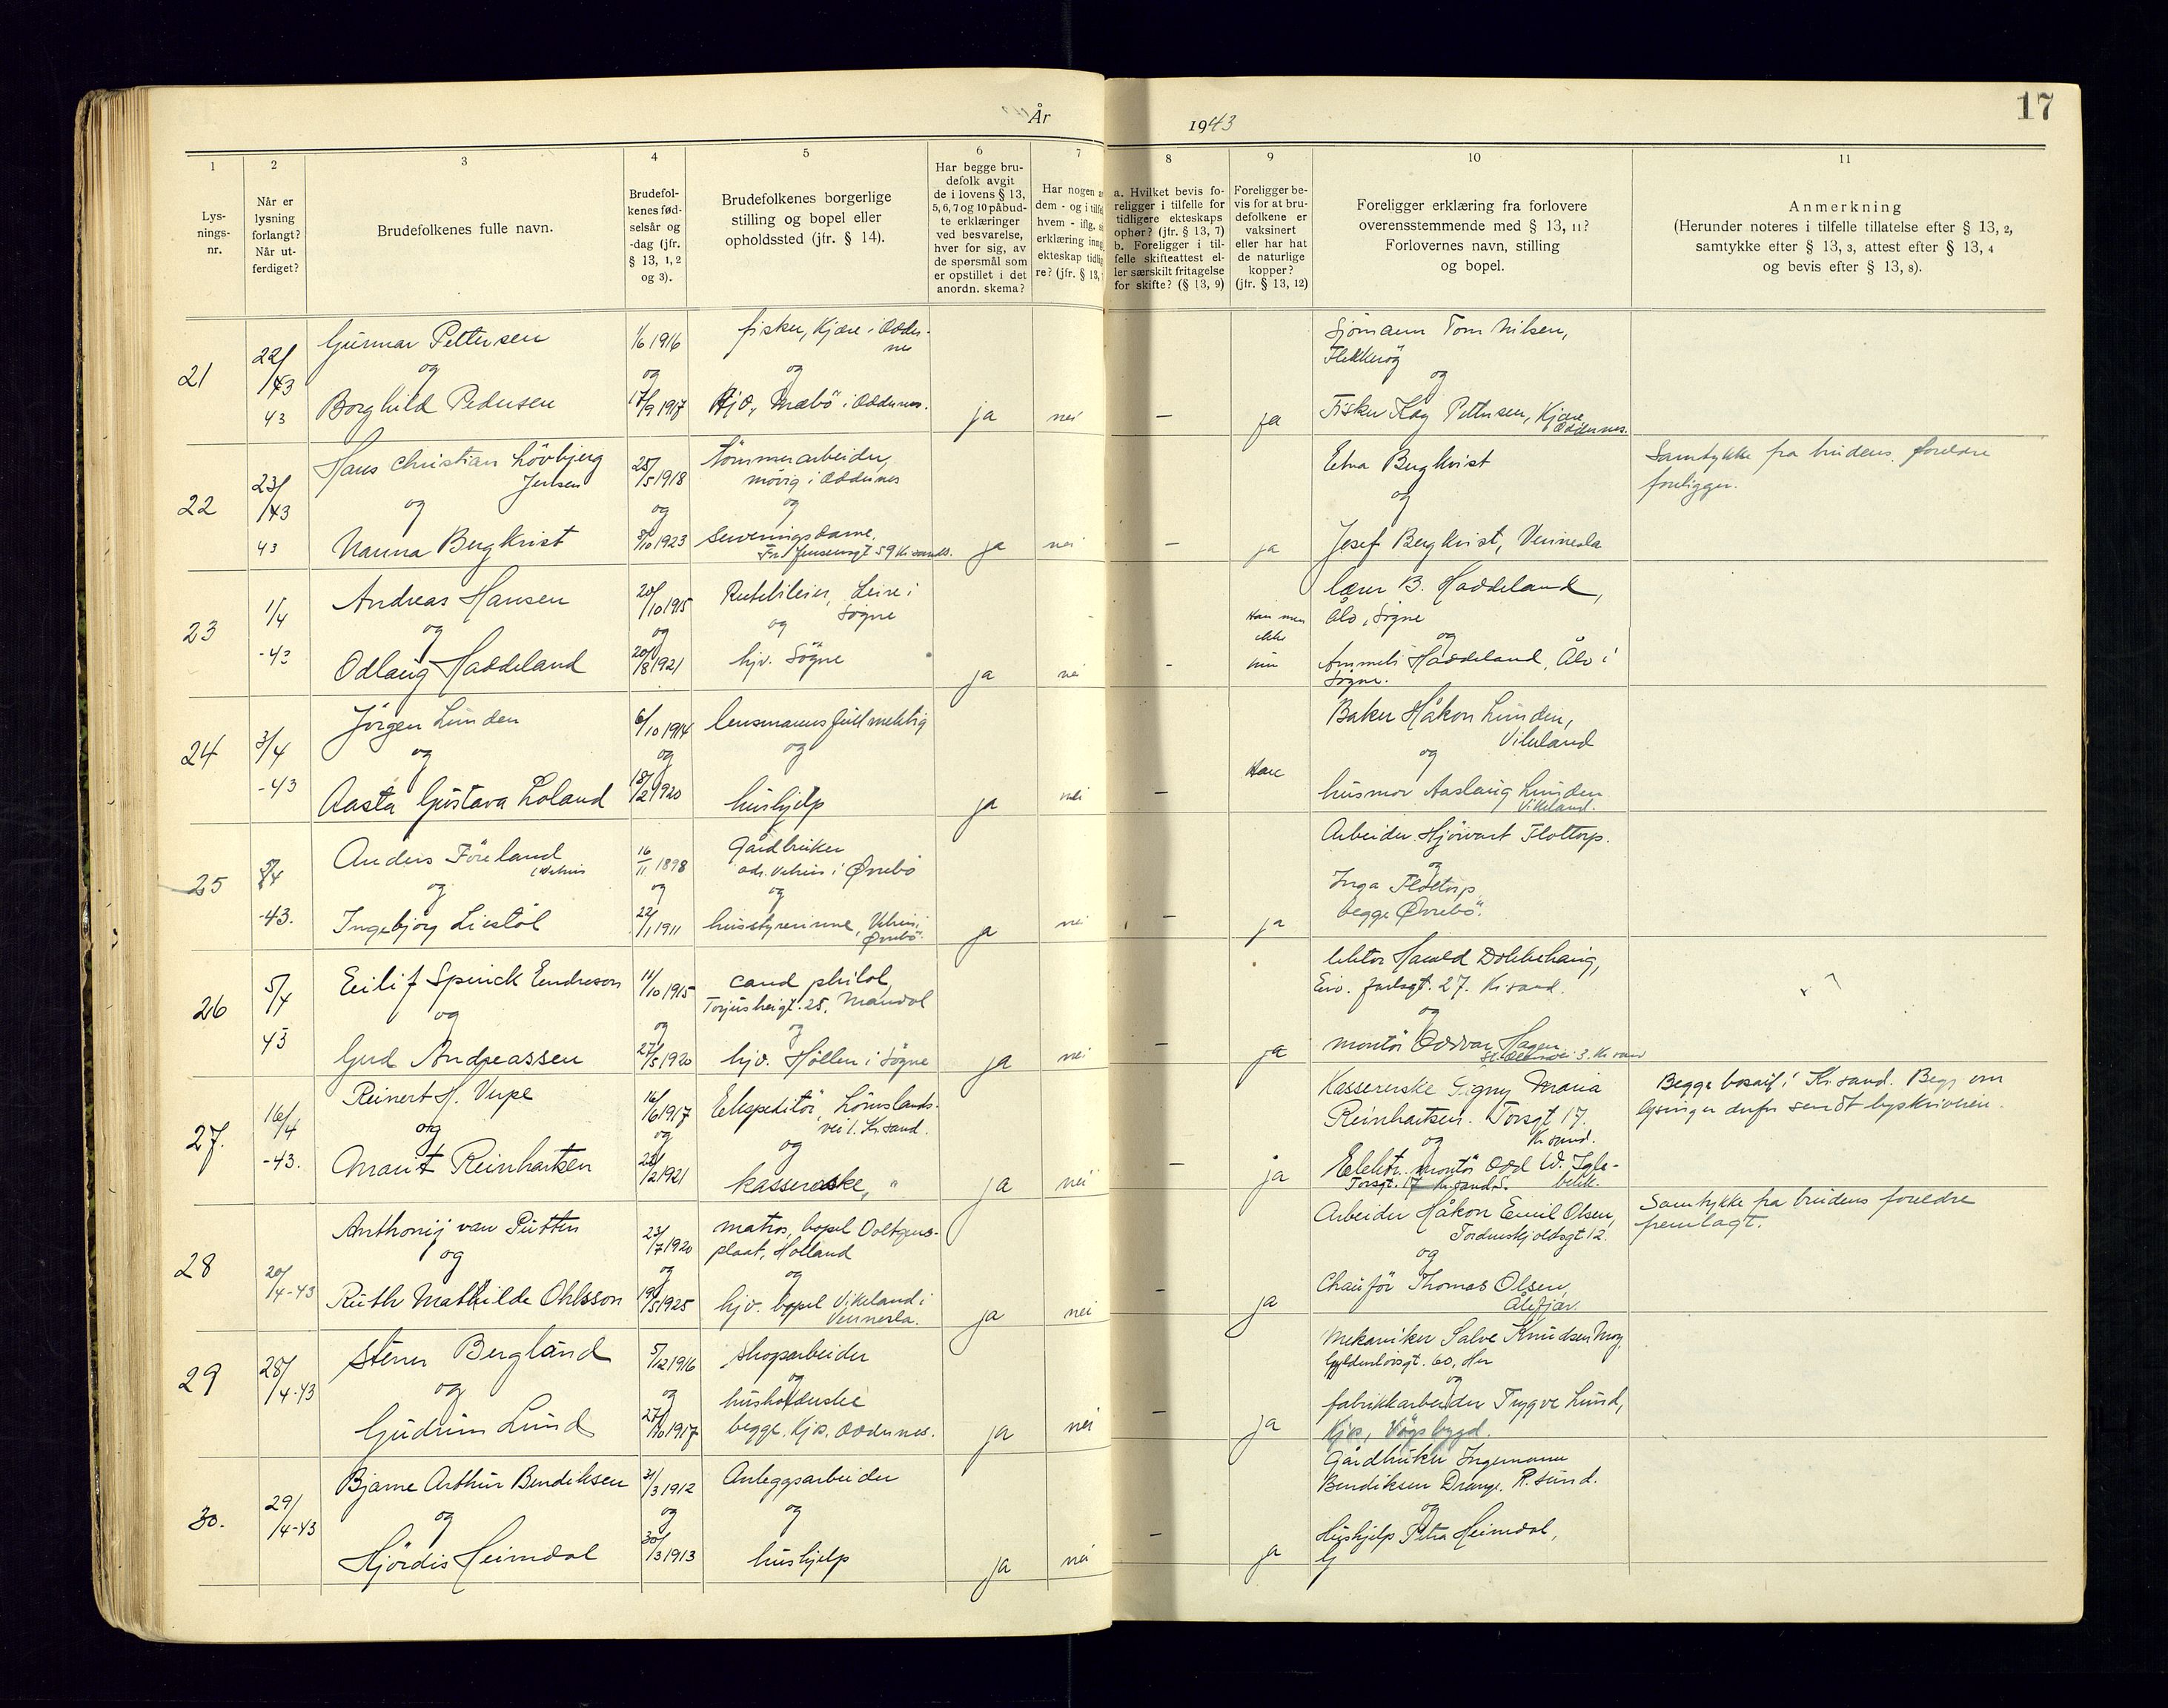 År 1943
17
1
2
3
4
5
6
7
8
9
10
11
Lys-
nings-
nr.
Når er
lysning
forlangt?
Når ut-
ferdiget?
Brudefolkenes fulle navn.
Brudefol-
kenes fød-
selsår og
-dag (jfr.
§ 13, 1, 2
og 3).
Brudefolkenes borgerlige
stilling og bopel eller
opholdssted (jfr. § 14).
Har begge bru-
defolk avgit
de i lovens § 13,
5, 6, 7 og 10 påbud-
te erklæringer
ved besvarelse,
hver for sig, av
de spørsmål som
er opstillet i det
anordn. skema?
Har nogen
dem - og i tilfe
hvem - iflg.
erklæring inng
ekteskap tidlig
re? (jfr. § 13,
a. Hvilket bevis fo-
religger i tilfelle for
tidligere ekteskaps
ophør? (jfr. § 13, 7)
b. Foreligger i til-
felle skifteattest el-
ler særskilt fritagelse
for skifte? (§ 13, 9)
Foreligger be-
vis for at bru-
defolkene er
vaksinert
eller har hat
de naturlige
kopper?
(jfr. § 13, 12)
Foreligger erklæring fra forlovere
overensstemmende med § 13, 11?
Forlovernes navn, stilling
og bopel.
Anmerkning
(Herunder noteres i tilfelle tillatelse efter § 13, 2,
samtykke efter § 13, 3, attest efter § 13, 4
og bevis efter § 13, 8).
21
22/
43
Gunnar Pettersen
og
Borghild Pedersen
1/6 1916
og
17/9 1917
fisker, Kjære i Odder-
nes
og
Hjv, Mæbö i Oddernes.
ja
nei
—
ja
Sjömann Tom Nilsen,
Flekkeröy
og
Fisker Kay Pettersen, Kjære
Oddernes.
22
23/
43
Hans Christian Lövbjerg
Jensen
og
Nanna Bergkvist
25/5 1918
og
/10 1923
tömmerarbeider,
mövig i Oddernes
og
serveringsdame,
Fru Jensensgt 59 Kr.sand S.
ja
nei
—
ja
Edna Bergkvist
og
Josef Bergkvist, Vennesla
Samtykke fra brudens foreldre
foreligger.
23
1/4
-43
Andreas Hansen
og
Odlaug Haddeland
20/10 1915
og
20/8 1921
Rutebileier, Leire i
Søgne
og
hjv. Søgne
ja
nei
-
Han men
ikke
hun
lærer B. Haddeland,
Ålo, Søgne
og
Ammeli Haddeland, Ålo i
Søgne.
24
3/4
-43
Jörgen Lunden
og
Aasta Gustava Loland
6/10 1914
og
18/2 1920
lensmannsfullmektig
og
hushjelp
ja
nei
—
Han
Baker Håkon Lunden,
Vikeland
og
husmor Aaslaug Lunden
Vikeland.
25
5/4
-43.
Anders Föreland
og
Ingebjörg Liestöl
16/11 1898
og
22/1 1911
Gårdbruker
adr. Vehus i Øvrebö
og
husstyrerinne, Vehus i
Øvrebö.
ja
nei
—
ja
Arbeider Hjövart Flottorp.
og
Inga Flottorp
begge Øvrebö.
26
5/4
43
Eilif Spinck Endreson
og
Gerd Andreassen
11/10 1915
og
27/5 1920
cand philol,
Torjusheigt. 25, Mandal
og
hjv. Höllen i Sögne
ja
nei
—
ja
lektor Harald Dokkehaug,
Eiv. Jarlsgt. 27. Kr.sand.
og
montör Oddvar Hagen
3. Kr sand
27.
16/4
-43.
Reinert H. Verpe
og
Marit Reinhartsen
16/6 1917
og
28/2 1921
Ekspeditör, Lömslands-
vei 1. Kr.sand.
og
kassererske, "
ja
nei
—
ja
Kassererske Signy Maria
Reinhartsen. Torsgt 17.
Kr.sand.
og
Elektr. montör Odd W. Igle-
bekk.
Torsgt. 17 Kr.sand S.
Begge bosatt i Kr.sand. Begj om
lysninger derfor sendt byskriveren.
28
20/4-43
Anthonij van Pütten
og
Ruth Mathilde Ohlsson
23/7 1920
og
19/5 1925
matros, bopel Ooltgens-
plaat, Holland
og
hjv. bopel Vikeland i
Vennesla.
ja
nei
—
ja
Arbeider Håkon Emil Olsen,
Tordenskjoldsgt 12.
og
Chauför Thomas Olsen,
Ålefjær.
Samtykke fra brudens foreldre
fremlagt.
29
28/4-43
Stener Bergland
og
Gudrun Lund
5/12 1916
og
27/10 1917
skogsarbeider
og
husholderske
begge. Kjos. Oddernes.
ja
nei
—
ja
Mekaniker Salve Knudsen Moy,
Gyldenlövsgt. 60, Her
og
fabrikkarbeider Trygve Lund,
Kjos, Vågsbygd.
30.
29/4-43
Bjarne Arthur Bendiksen
og
Hjördis Heimdal
31/3 1912
og
30/3 1913
Anleggsarbeider
og
hushjelp
ja
nei
—
ja
Gårdbruker Ingemann
Bendiksen Drange. R.sund.
og
Hushjelp Petra Heimdal,